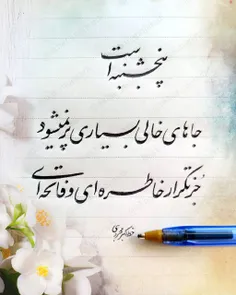 پنجشنبه است
جاهای خالی بسیاری پر نمیشود
جز تکرار خاطره ای و فاتحه ای